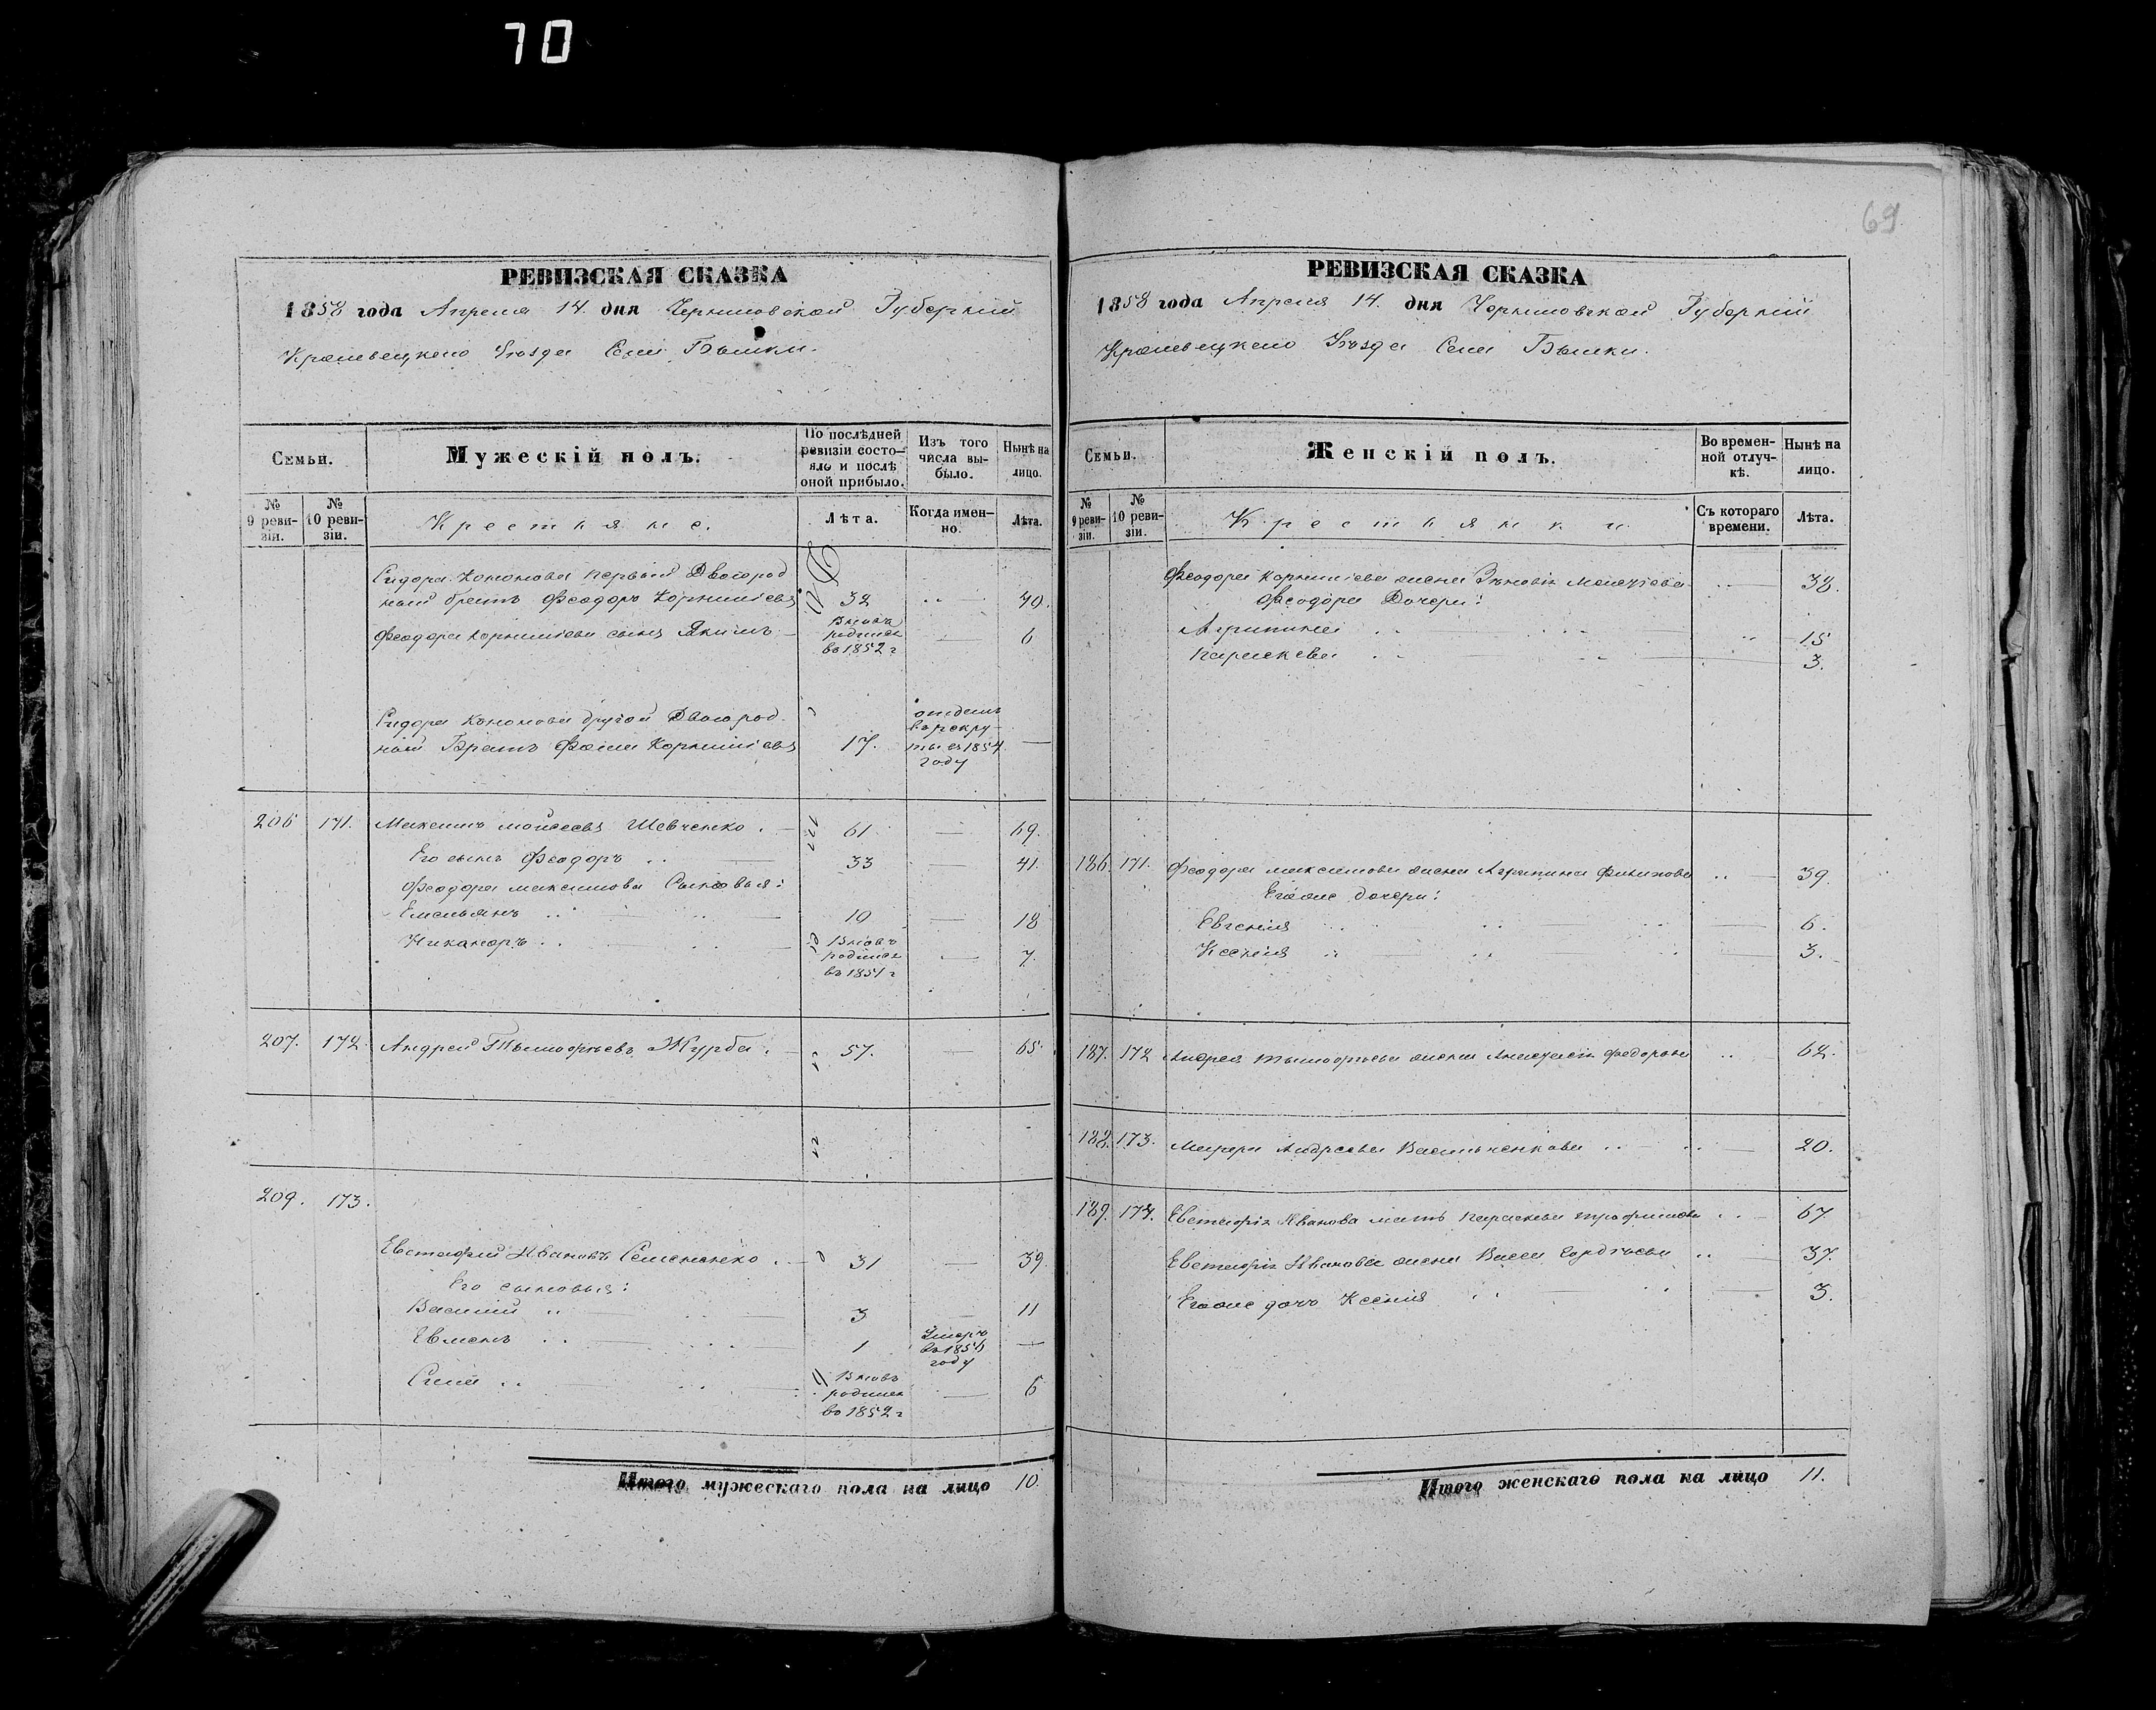 70
69
РЕВИЗСКАЯ СКАЗКА
1858 года Апреля 14 дня Черниговской Губерніи
Кролевецкаго Уѣзда Села
Семьи.
Мужескій полъ.
По послѣдней ревизіи состо-яло и послѣ оной прибыло.
Изъ того числа вы-было.
Нынѣ на лицо.
№ 9 реви-зіи.
№ 10 реви-зіи.
Крестьяне.
Лѣта.
Когда имен-но.
Лѣта.
Сидора Кононова первый Двоюрод
ный братъ Феодоръ Корнилiевъ 32 40.
Феодора Корнилiева сынъ Якимъ Вновь родился во 1852 г 6
Сидора Кононова другой Двоюрод
ный Братъ Фома Корнилiевъ 17. отданъ въ рекру-ты въ 1854 году —
206 171. Максимъ Мойсеевъ Шевченко. 61 — 69.
Его сынъ Феодоръ 33 — 41.
Феодора Максимова Сыновья:
Емельянъ 10 — 18
Никаноръ Вновь родился въ 1851 г — 7.
207. 172. Андрей Тимофѣевъ Журба. 57. — 65.
209. 173.
Евстафій Ивановъ Семененко. 31 — 39.
Его сыновья:
Василій 3 — 11
Евменъ 1 Умеръ въ 1856 году —
Сила Вновь родился во 1852 г — 6
Итого мужескаго пола на лицо 10.
РЕВИЗСКАЯ СКАЗКА
1858 года Апреля 14. дня Черниговской Губерніи
Кролевецкаго Уѣзда Села
Семьи.
Женскій полъ.
Во времен-ной отлуч-кѣ.
Нынѣ на лицо.
№ 9 реви-зіи.
№ 10 реви-зіи.
Крестьянки
Съ котораго времени.
Лѣта.
Феодора Корнилiева жена Зѣновiя 38.
Феодора Дочери:
Агрипина 15
Параскева 3.
186. 171. Феодора Максимова жена Агрипина Филипова 39.
Егоже дочери:
Евгенія 6.
Ксенія 3.
187. 172 Андрея Тимофѣева жена Анастасія Федорова 62.
188. 173. Андреева Васильченкова 20.
189. 174. Евстафія Иванова мать Параскева Трофимова 67
Евстафія Иванова жена Васса Гордѣева 37.
Егоже дочь Ксенія 3.
Итого женскаго пола на лицо 11.